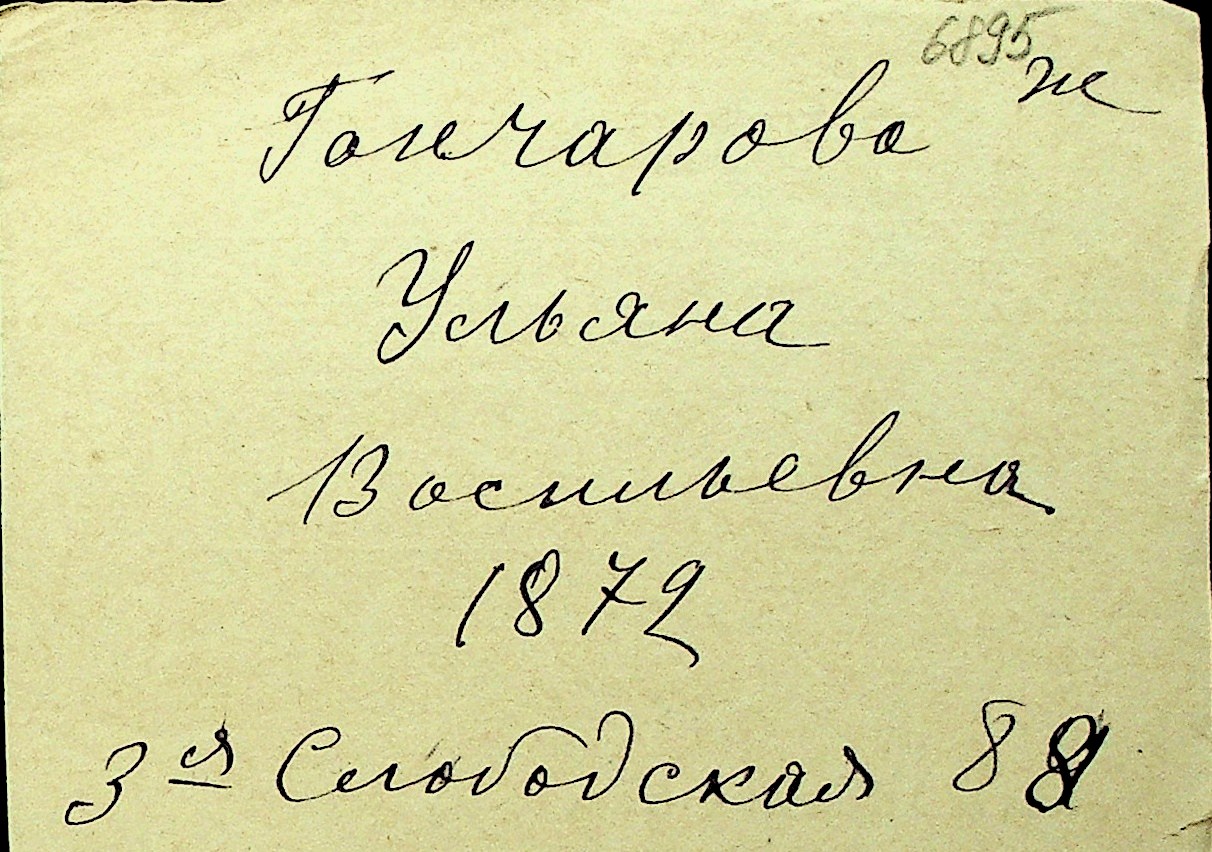 6895 ж
Гончарова
Ульяна
Васильевна
1872
3-я Слободская 88